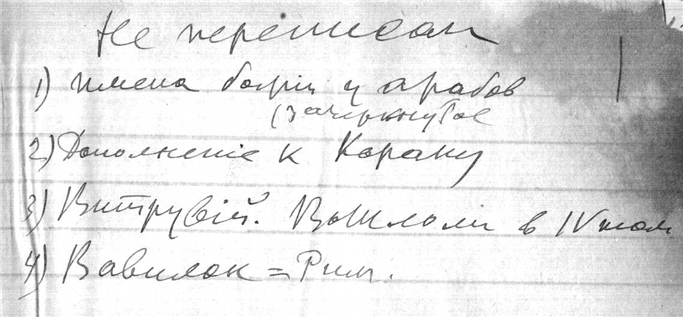 Не переписан
1) Имена богинь у арабов
(зачеркнутое
2) Дополненіе к Корану
3) Витрувій. в IV том
4) Вавилон = Рим.